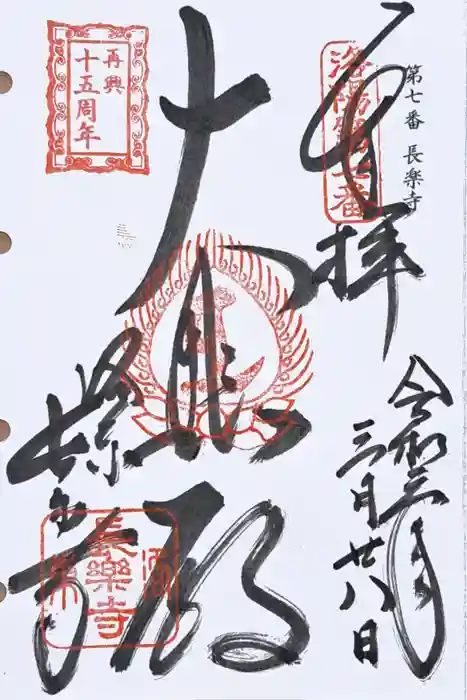 第七番 長楽寺
奉拝
令和三年
三月廿八日
大悲殿
長楽寺
再興
十五周年
長樂寺